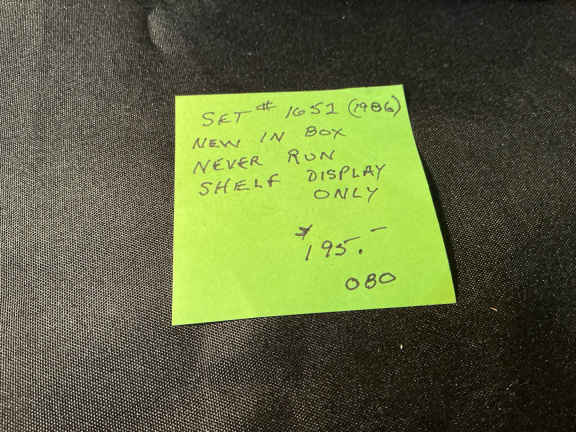 SET # 1652 (1986)
NEW IN BOX
NEVER RUN
SHELF DISPLAY
ONLY
$195.-
080